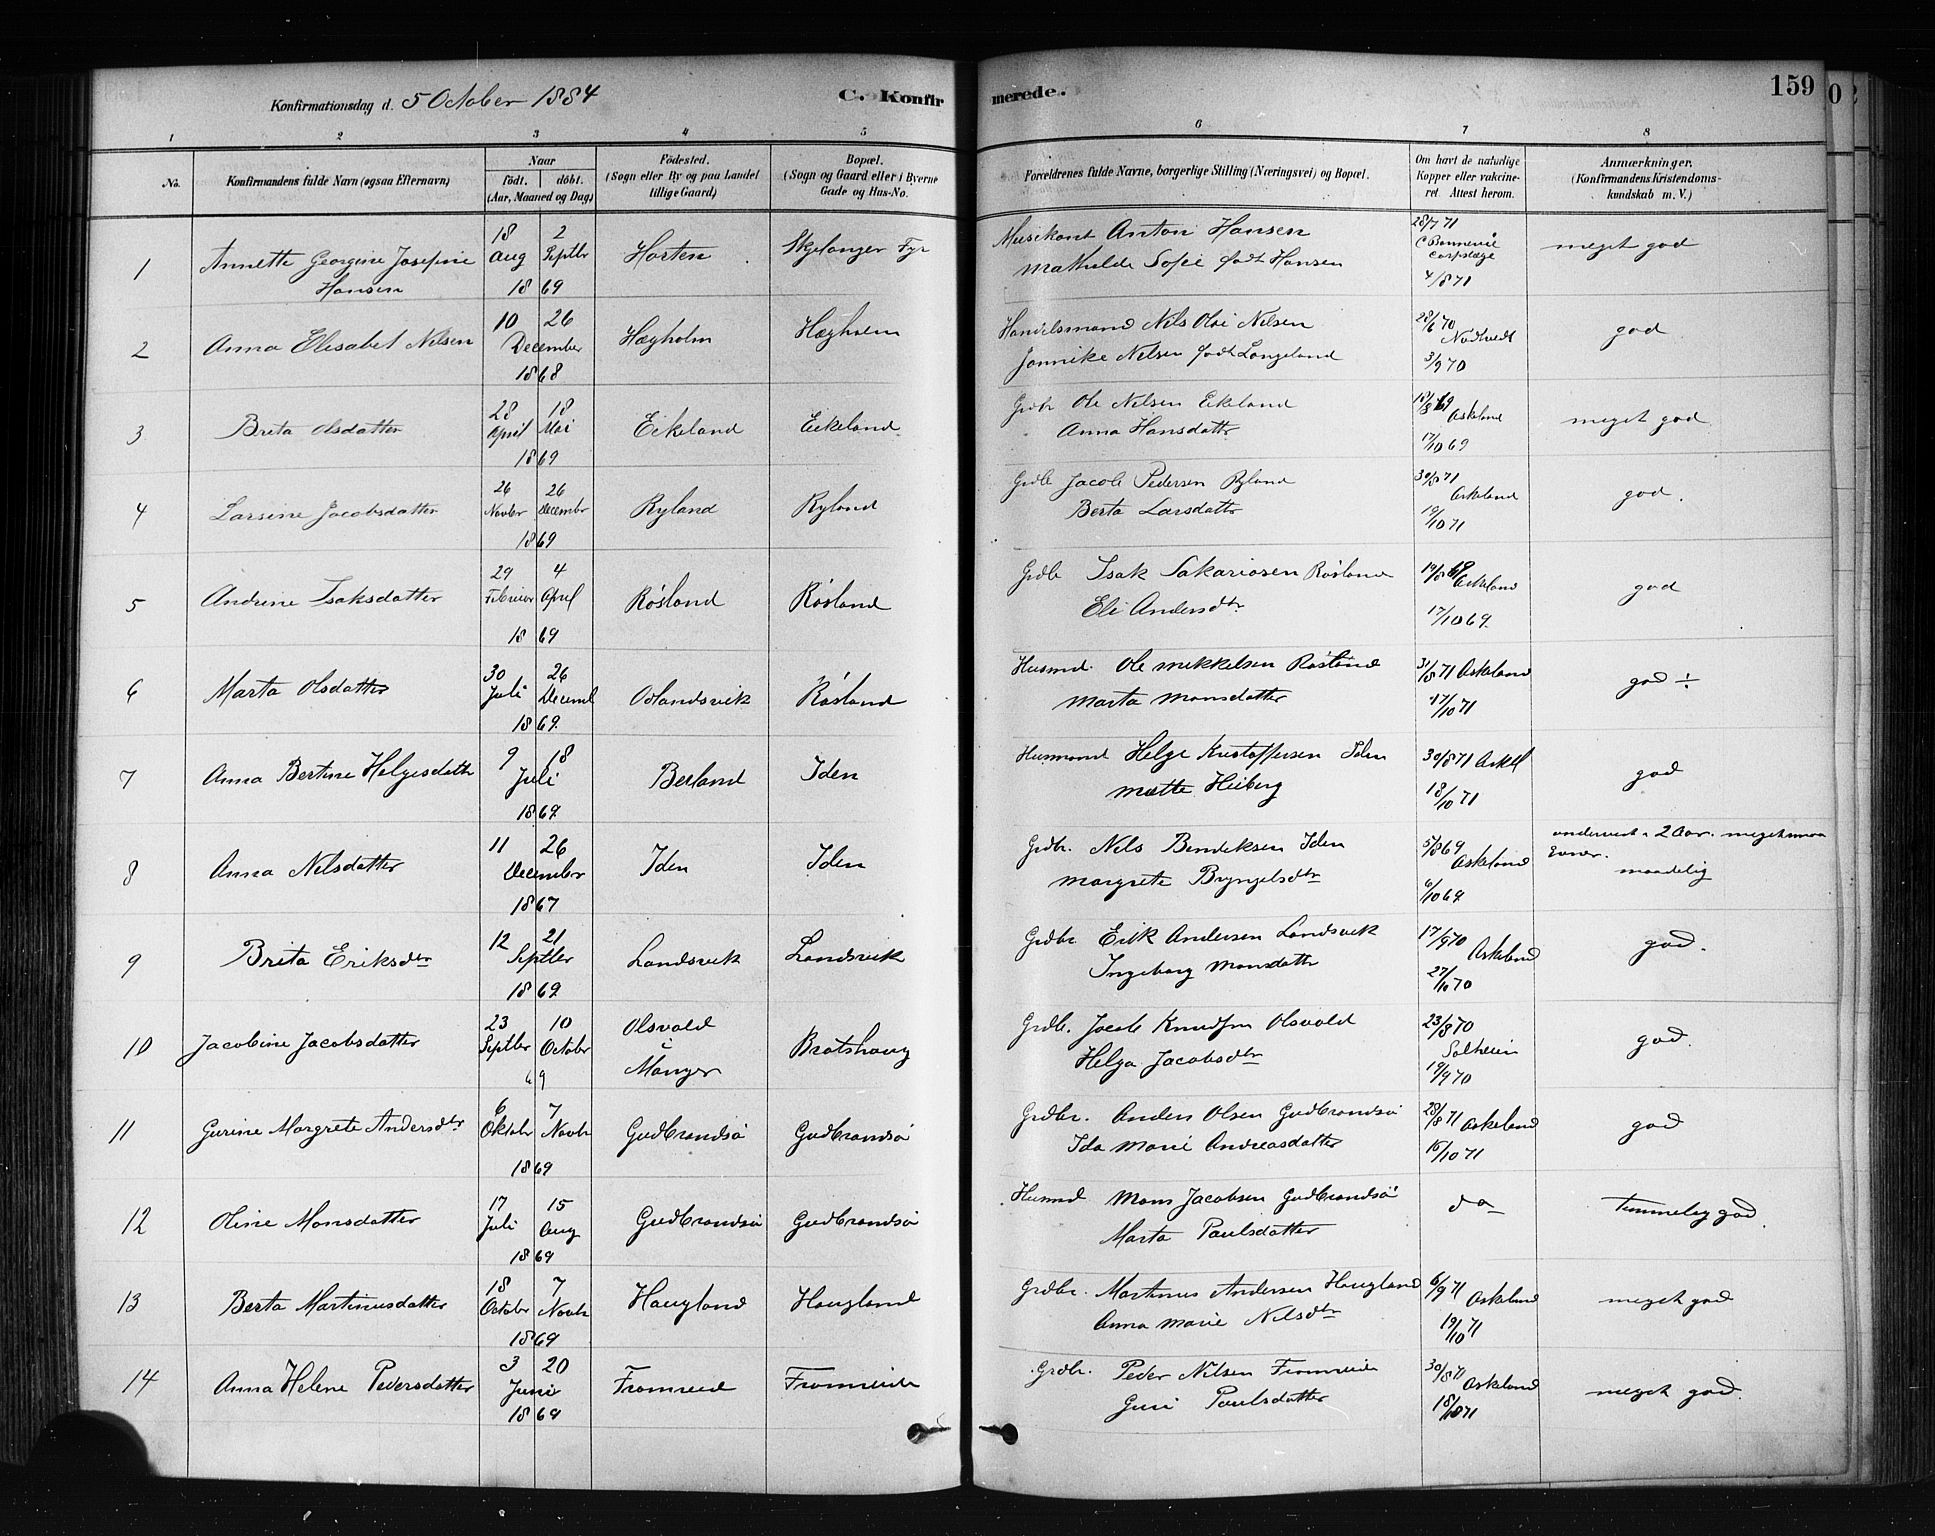 Konfirmationsdag d. 5 October 1884
C. Konfirmerede.
159
1 2 3 4 5 6 7 8
No.
Konfirmandens fulde Navn (ogsaa Efternavn)
Naar
födt. döbt.
(Aar, Maaned og Dag)
Födested.
(Sogn eller By og paa Landet
tillige Gaard)
Bopæl.
(Sogn og Gaard eller i Byerne
Gade og Hus-No.
Forældrenes fulde Navne, borgerlige Stilling (Næringsvei) og Bopæl.
Om havt de naturlige
Kopper eller vakcine-
ret. Attest herom.
Anmærkninger.
(Konfirmandens Kristendoms-
kundskab m. V.)
1 Annette Georgine Josepine Hansen 18 Aug 2 Septbr 1869 Horten Skjelanger Fyr Musikant Anton Hansen
Mathilde Sofie født Hansen 28/7 71 C Bonnevie Corpslæge 4/8 71 meget god
2 Anna Elisabet Nilsen 10 26 December 1868 Hægholm Hægholm Handelsmand Nils Olai Nilsen
Jannike Nilsen født Langeland 28/6 70 Nødtvedt 3/9 70 god
3 Brita Olsdatter 28 April 18 Mai 1869 Eikeland Eikeland Grdbr Ole Nilsen Eikeland
Anna Hansdattr 18/8 69 Askeland 17/10 69 meget god
4 Larsine Jacobsdatter 26 Novbr 26 Decembr 1869 Ryland Ryland Grdb Jacob Pedersen Ryland
Berta Larsdattr 30/8 71 Askeland 19/10 71 god.
5 Andrine Isaksdatter 29 Februar 4 April 1869 Røsland Røsland Grdb Isak Sakariasen Røsland
Eli Andersdtr 19/8 69 Askeland 17/10 69 god
6 Marta Olsdatter 30 Juli 26 Decemb 1869 Odlandsvik Røsland Husmd. Ole Mikkelsen Røsland
Marta Monsdatter 31/8 71 Askeland 17/10 71 god ÷
7 Anna Bertine Helgesdattr 9 18 Juli 1869 Berland Iden Husmand Helge Kristoffersen Iden
Mætte Heiberg 30/8 71 Askel 18/10 71 god
8 Anna Nilsdatter 11 26 December 1867 Iden Iden Grdbr. Nils Bendiksen Iden
Margrete Bryngelsdtr 5/8 69 Askeland 6/10 69 undervist 2 Aar. meget smaa Evner. maadelig
9 Brita Eriksdtr 12 21 Septbr 1869 Landsvik Landsvik Grdbr Erik Andersen Landsvik
Ingeborg Monsdattr 17/9 70 Askeland 27/10 70 god.
10 Jacobine Jacobsdatter 23 Septbr 10 Octobr 69 Olsvold i Manger Bratshaug Grdbr. Jacob Knudsen Olsvold
Helga Jacobsdtr 23/8 70 Solheim 19/9 70 god.
11 Gurine Margrete Andersdtr 6 Oktobr 7 Novbr 1869 Gudbrandsø Gudbrandsø Grdbr. Anders Olsen Gudbrandsø
Ida Marie Andreasdatter 28/8 71 Askeland 16/10 71 god
12 Oline Monsdatter 17 Juli 15 Aug 1869 Gudbrandsø Gudbrandsø Husmd Mons Jacobsen Gudbrandsø
Marta Paulsdatter do Temmelig god.
13 Berta Martinusdatter 18 Octobr 7 Novbr 1869 Haugland Haugland Grdbr. Martinus Andersen Haugland
Anna Marie Nilsdtr 6/9 71 Askeland 19/10 71 meget god
14 Anna Helene Pedersdatter 3 20 Juni 1869 Fromreide Fromreide Grdbr. Peder Nilsen Fromreide
Guri Paulsdatter 30/8 71 Askeland 18/10 71 meget god.